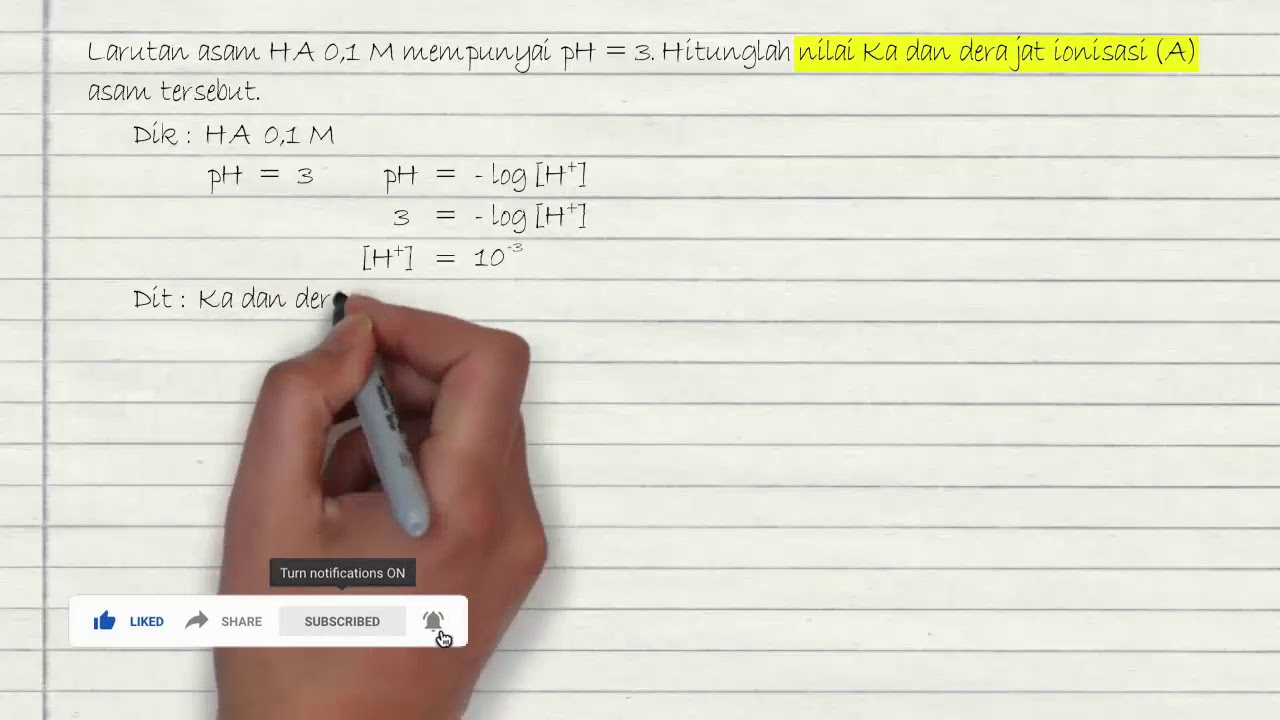 Larutan asam HA 0,1 M mempunyai pH = 3. Hitunglah nilai Ka dan derajat ionisasi (A)
asam tersebut.
Dik : HA 0,1 M
pH = 3 pH = - log [H⁺]
3 = - log [H⁺]
[H⁺] = 10⁻³
Dit : Ka dan der
Turn notifications ON
LIKED SHARE SUBSCRIBED